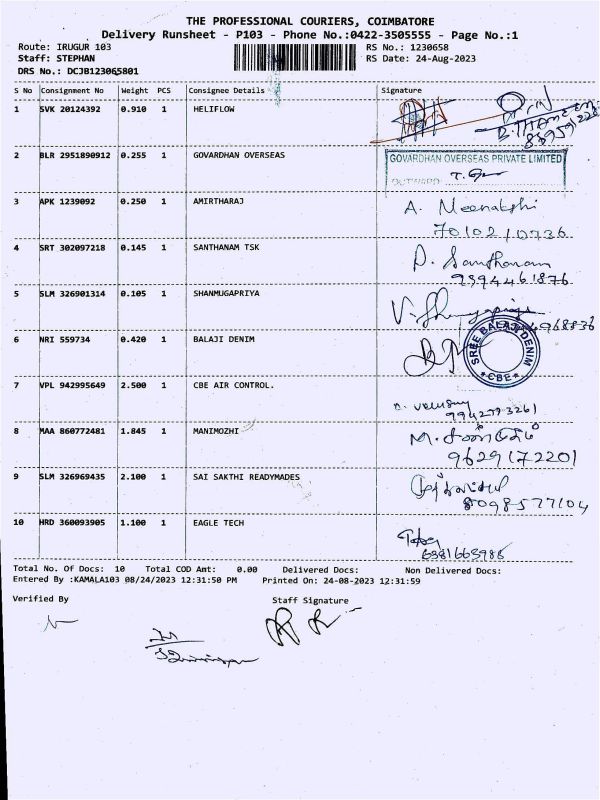 THE PROFESSIONAL COURIERS, COIMBATORE
Delivery Runsheet - P103 - Phone No.:0422-3505555 - Page No.:1
Route: IRUGUR 103 RS No.: 1230658
Staff: STEPHAN RS Date: 24-Aug-2023
DRS No.: DCJB123065801
S No Consignment No Weight PCS Consignee Details Signature
1 SVK 20124392 0.910 1 HELIFLOW
2 BLR 2951890912 0.255 1 GOVARDHAN OVERSEAS
GOVARDHAN OVERSEAS PRIVATE LIMITED
3 APK 1239092 0.250 1 AMIRTHARAJ A. Meenakshi
4 SRT 302097218 0.145 1 SANTHANAM TSK P. Santhanam
9394461876
5 SLM 326901314 0.105 1 SHANMUGAPRIYA
6 NRI 559734 0.420 1 BALAJI DENIM
SREE BALAJI DENIM
* CBE *
7 VPL 942995649 2.500 1 CBE AIR CONTROL.
9942773261
8 MAA 860772481 1.845 1 MANIMOZHI
9629172201
9 SLM 326969435 2.100 1 SAI SAKTHI READYMADES
8098577104
10 HRD 360093905 1.100 1 EAGLE TECH
6381663986
Total No. Of Docs: 10 Total COD Amt: 0.00 Delivered Docs: Non Delivered Docs:
Entered By :KAMALA103 08/24/2023 12:31:50 PM Printed On: 24-08-2023 12:31:59
Verified By Staff Signature